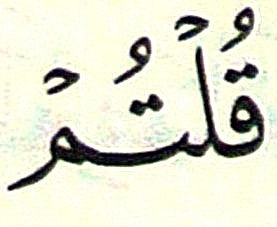 قُلْتُمْ